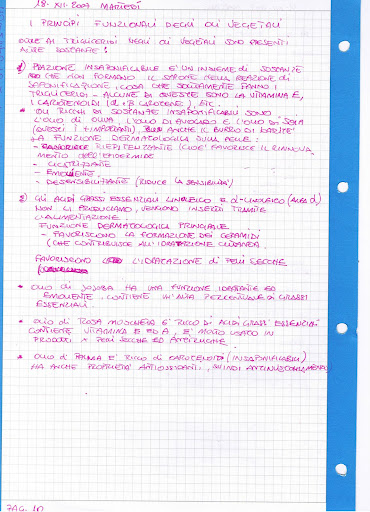 18. XII. 2007 MARTEDÌ
I PRINCIPI FUNZIONALI DEGLI OLI VEGETALI
OLTRE AI TRIGLICERIDI NEGLI OLI VEGETALI SONO PRESENTI
ALTRE SOSTANZE:
1) FRAZIONE INSAPONIFICABILE E' UN INSIEME DI SOSTANZE
CHE NON FORMANO IL SAPONE NELLA REAZIONE DI
SAPONIFICAZIONE, COSA CHE SOLITAMENTE FANNO I
TRIGLICERIDI - ALCUNE DI QUESTE SONO LA VITAMINA E,
I CAROTENOIDI (α + β CAROTENE), ETC.
* OLI RICCHI DI SOSTANZE INSAPONIFICABILI SONO
L'OLIO DI OLIVA, L'OLIO DI AVOCADO E L'OLIO DI SOIA
(QUESTI I + IMPORTANTI), ANCHE IL BURRO DI KARITÈ
LA FUNZIONE DERMATOLOGICA SULLA PELLE:
- RIEPITELIZZANTE (CIOE' FAVORISCE IL RINNOVA
MENTO DELL'EPIDERMIDE
- CICATRIZZANTE
- EMOLLIENTE
- DESENSIBILIZZANTE (RIDUCE LA SENSIBILITÀ)
2) GLI ACIDI GRASSI ESSENZIALI LINOLEICO E α-LINOLEICO
NON LI PRODUCIAMO, VENGONO INSERITI TRAMITE
L'ALIMENTAZIONE.
FUNZIONE DERMATOLOGICA PRINCIPALE
- FAVORISCONO LA FORMAZIONE DEI CERAMIDI
(CHE CONTRIBUISCE ALL'IDRATAZIONE CUTANEA)
FAVORISCONO L'IDRATAZIONE DI PELLI SECCHE
* OLIO DI JOJOBA HA UNA FUNZIONE IDRATANTE ED
EMOLLIENTE, CONTIENE UN'ALTA PERCENTUALE DI GRASSI
ESSENZIALI.
* OLIO DI ROSA MOSCHETA E' RICCO DI ACIDI GRASSI ESSENZIALI
CONTIENE VITAMINA E ED A, E' MOLTO USATO IN
PRODOTTI X PELLI SECCHE ED ANTIRUGHE.
* OLIO DI PALMA E' RICCO DI CAROTENOIDI (INSAPONIFICABILI)
HA ANCHE PROPRIETÀ ANTIOSSIDANTI, QUINDI ANTINVECCHIAMENTO
PAG. 10